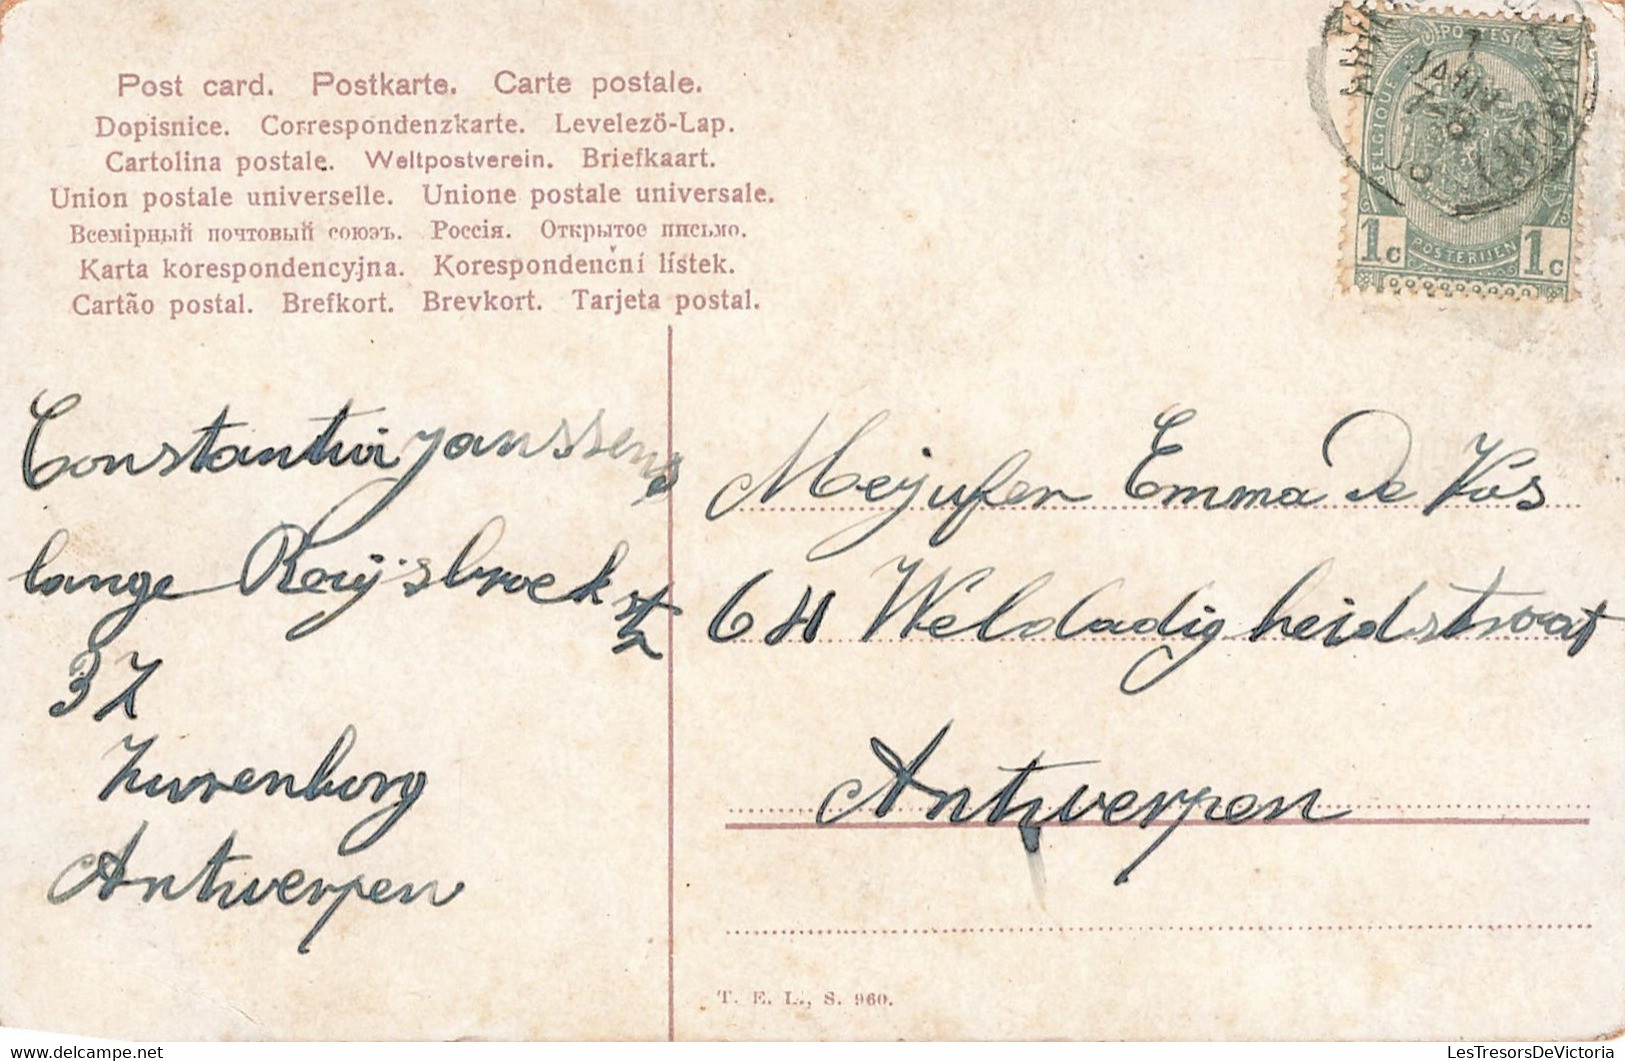 Post card. Postkarte. Carte postale.
Dopisnice. Correspondenzkarte. Levelező-Lap.
Cartolina postale. Weltpostverein. Briefkaart.
Union postale universelle. Unione postale universale.
Всемірный почтовый союзъ. Россія. Открытое письмо.
Karta korespondencyjna. Korespondenční lístek.
Cartão postal. Brefkort. Brevkort. Tarjeta postal.
BELGIQUE POSTES
POSTERIJEN
1c 1c
JANV
Janssens
lange
37
Zurenborg
Antwerpen
Mejufer Emma De Vos
64 Weldadigheidstraat
Antwerpen
T. E. L., S. 960.
LesTresorsDeVictoria